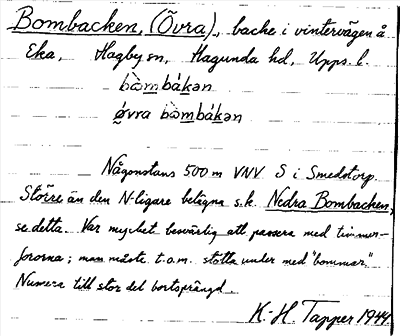 Bombacken, (Övra), backe i vintervägen å
Eka, Hagby sn, Hagunda hd, Upps. l.
bòmbákən
øvra bòmbákən
Någonstans 500 m VNV S i Smedstorp.
Större än den N-ligare belägna s.k. Nedra Bombacken,
se detta. Var mycket besvärlig att passera med timmer-
fororna; man måste t.o.m. stötta under med "bommar".
Numera till stor del bortsprängd.
K-H. Tapper 1944